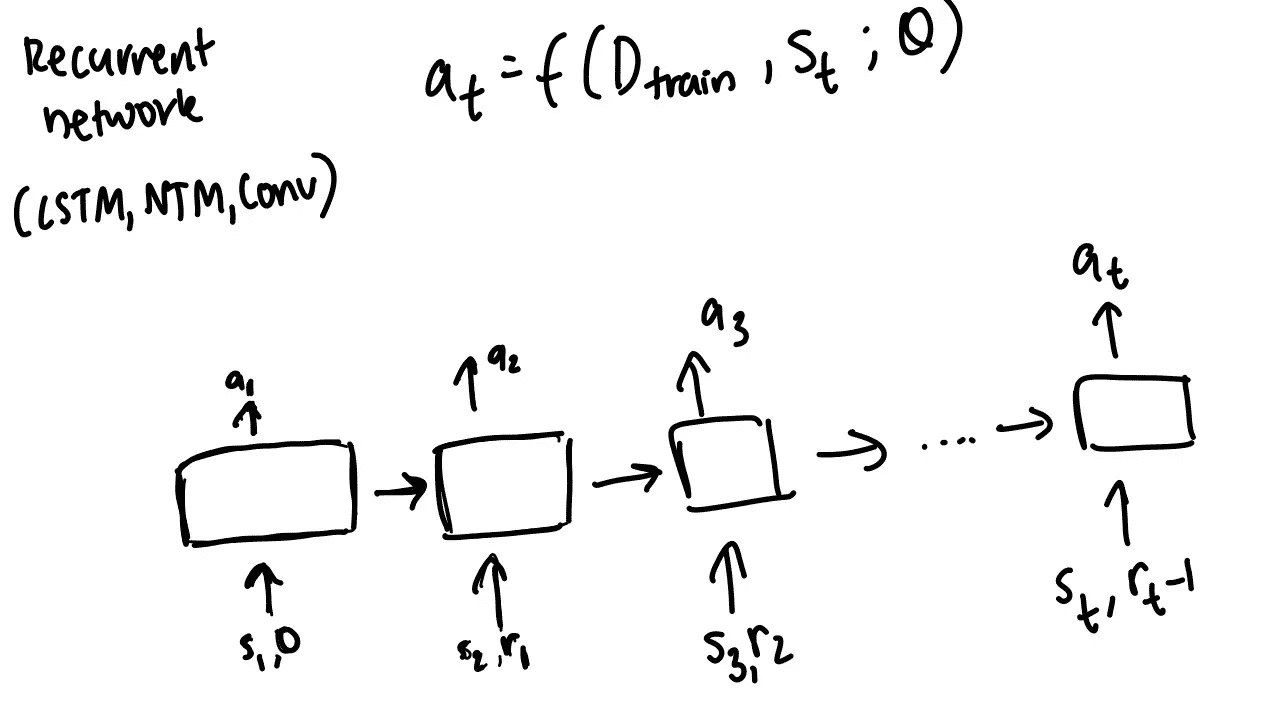 Recurrent
network
(LSTM, NTM, Conv)
a_t = f(D_train, s_t; θ)
a_1
a_2
a_3
a_t
....
s_1, 0
s_2, r_1
s_3, r_2
s_t, r_t-1